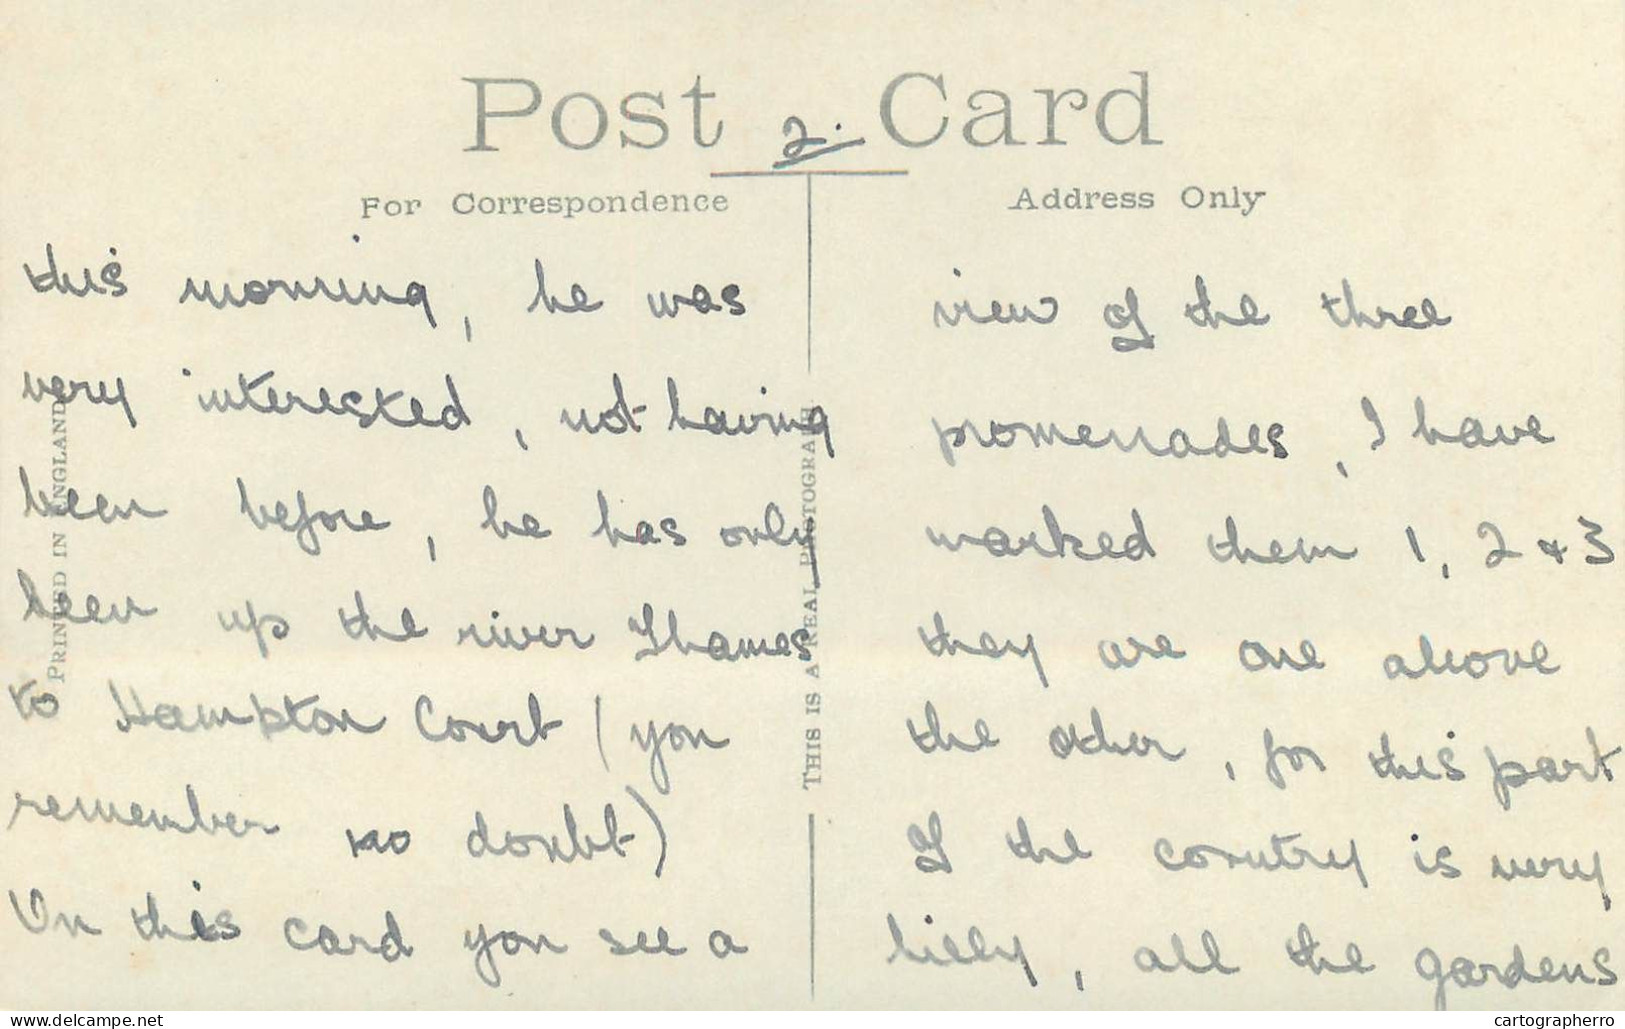 Post 2. Card
For Correspondence
Address Only
this morning, he was
very interested, not having
been before, he has only
been up the river Thames
to Hampton Court (you
remember no doubt)
On this card you see a
view of the three
promenades, I have
marked them 1, 2 & 3
they are one above
the other, for this part
of the country is very
hilly, all the gardens
PRINTED IN ENGLAND
THIS IS A REAL PHOTOGRAPH.
www.delcampe.net
cartographerro